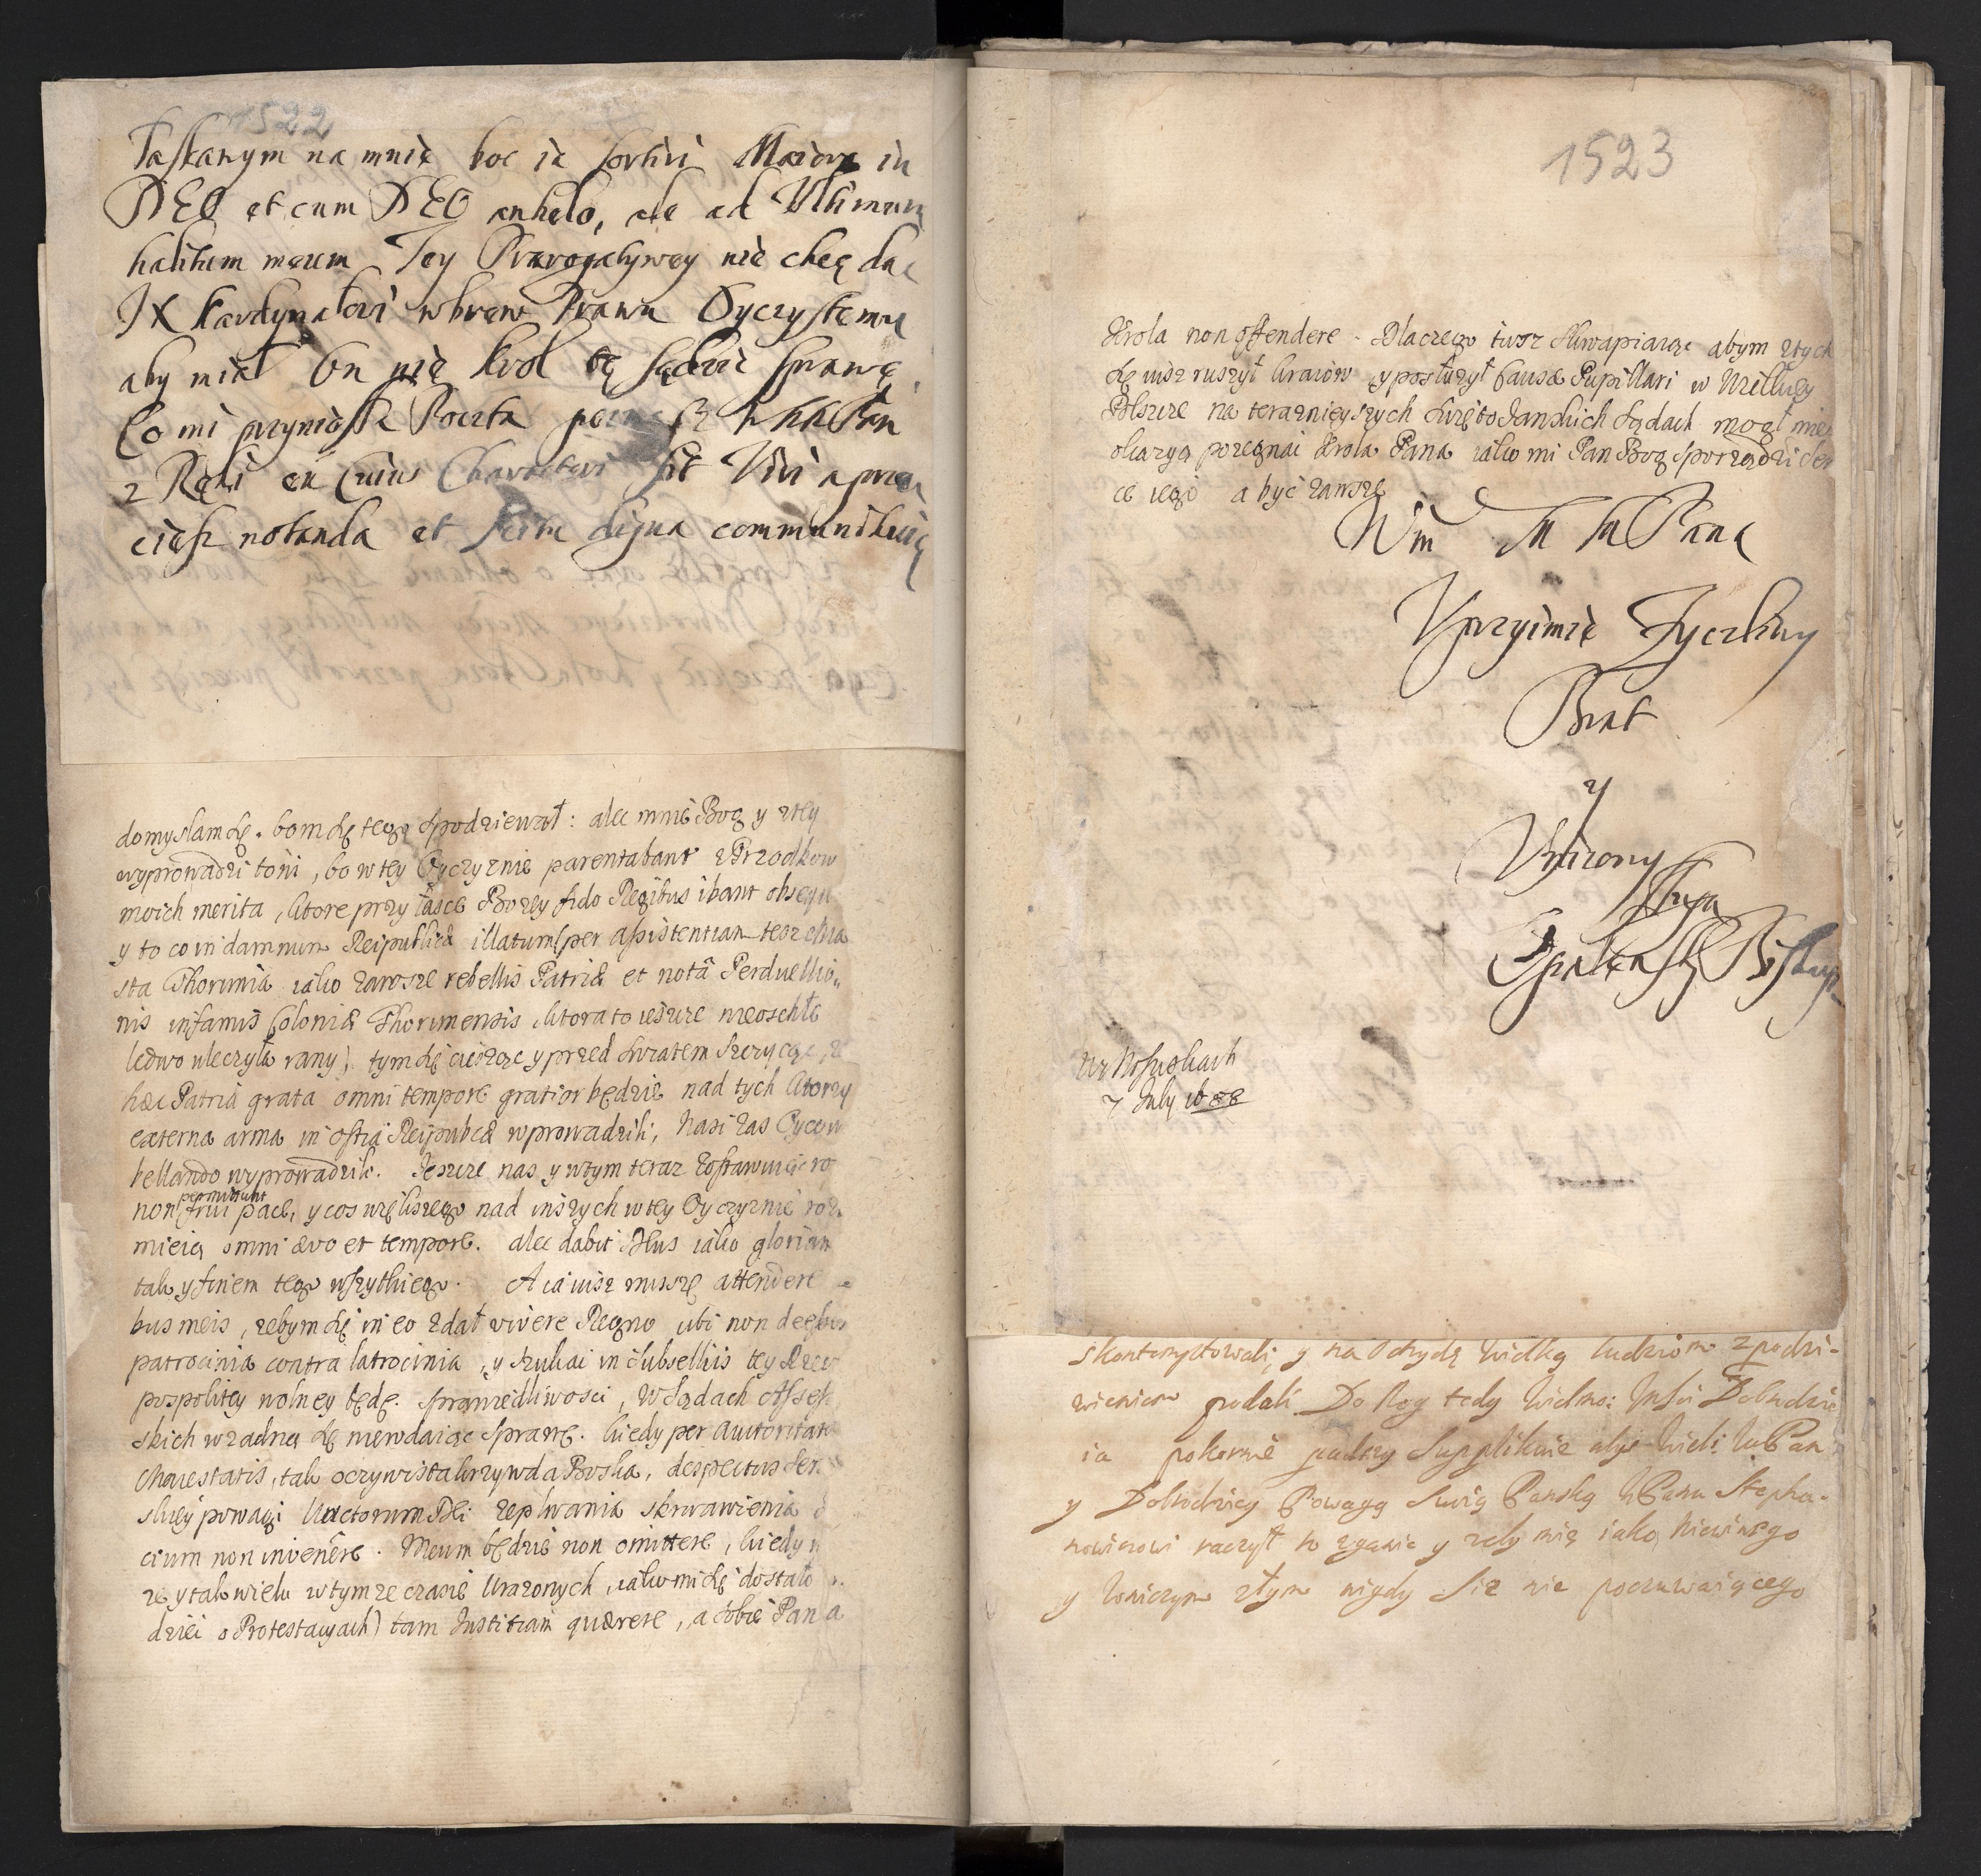 1522
łaskawym na mnię boć ia sortiri Maiora in
DEO et cum DEO anhelo, ale ad Ultimum
halitum meum Jey Prærogatywey nie chcę dać
JX Kardynałowi wbrew Prawu Oyczystemu
aby miał On nie Krol tę sądzić sprawę
Co mi przyniosła Poczta
z Ręki en cuius Charakteri sit Vivi a przec
cięsz notanda et scitu digna communikuię
domyslam sę. bom sę tego spodziewał: alec mnie Bog y ztey
wyprowadzi toni, bo w tey Oyczyznie parentabant z Przodkow
moich merita, ktore przy łasce Bozey fido Regibus ibant obsequ
y to co in damnum Reipublicæ illatum (per assistentiam tesz Mia
sta Thorunia iako zawsze rebellis Patriæ et notâ Perduellio„
nis infamis Coloniæ Thorunensis ktora to ieszcze nieoschłe
ledwo uleczyła rany) tym sę ciesząc y przed swiatem szczycąc, ze
hæc Patria grata omni tempore gratior będzie nad tych ktorzy
externa arma in ostia Reipubcæ wprowadzili, nasi zas Oycow
bellando wyprowadzili. Jeszcze nas y w tym teraz zostawuiąc ro
permittunt
non frui pace, y cos większego nad inszych w tey Oyczyznie roz
mieią omni ævo et tempore. alec dabit Deus iako gloriam
tak y finem tego wszytkiego. A ia iusz muszę attendere
bus meis, zebym sę in eo zdał vivere Regno ubi non deest
patrocinia contra latrocinia, y szukai in Subselliis tey Rzec
pospolitey wolney będę sprawiedliwosci, w Sądach Assess
skich w zadną sę niewdaiąc sprawę. kiedy per Autoritate
Maiestatis, tak oczywista krzywda Boska, despectus
skiey powagi Unctorum Dei zeplwania skrwawienia
cium non invenêre. Meum będzie non omittere, kiedy
ze y tak wielu w tymze czasie Urazonych, iako mi sę dostało
dziei o Protestacyach) tam Justitiam quærere, a sobie Pana
1523
Krola non offendere. Dlaczego tusz skwapiaiąc abym z tych
sę iusz ruszył kraiow y posłuzył Causæ Pupillari w Wielkiey
Polszcze na teraznieyszych Swięto Janskich Sądach mogł mieć
okazyą pozegnai Krola Pana iako mi Pan Bog sporządzi ser
ce iego a być zawsze
Wm M M Pana
Uprzyimie Zyczliwy
Brat
y
Unizony
Sługa
Opalenski Biskup
7 July 1688
skontemptowali, y na Ochydę wielką ludziom z podzi-
wieniem podali. Do Nog tedy Wielmo: Msci Dobrodzie
ia pokornie padszy Supplikuie abys Wiel: MPan
y Dobrodziey Powagą Swią Panską WPanu Stepha-
nowiczowi raczył to zganic y zeby mię iako Niewinego
y wniczym złym nigdy Się nie poczuwaiącego